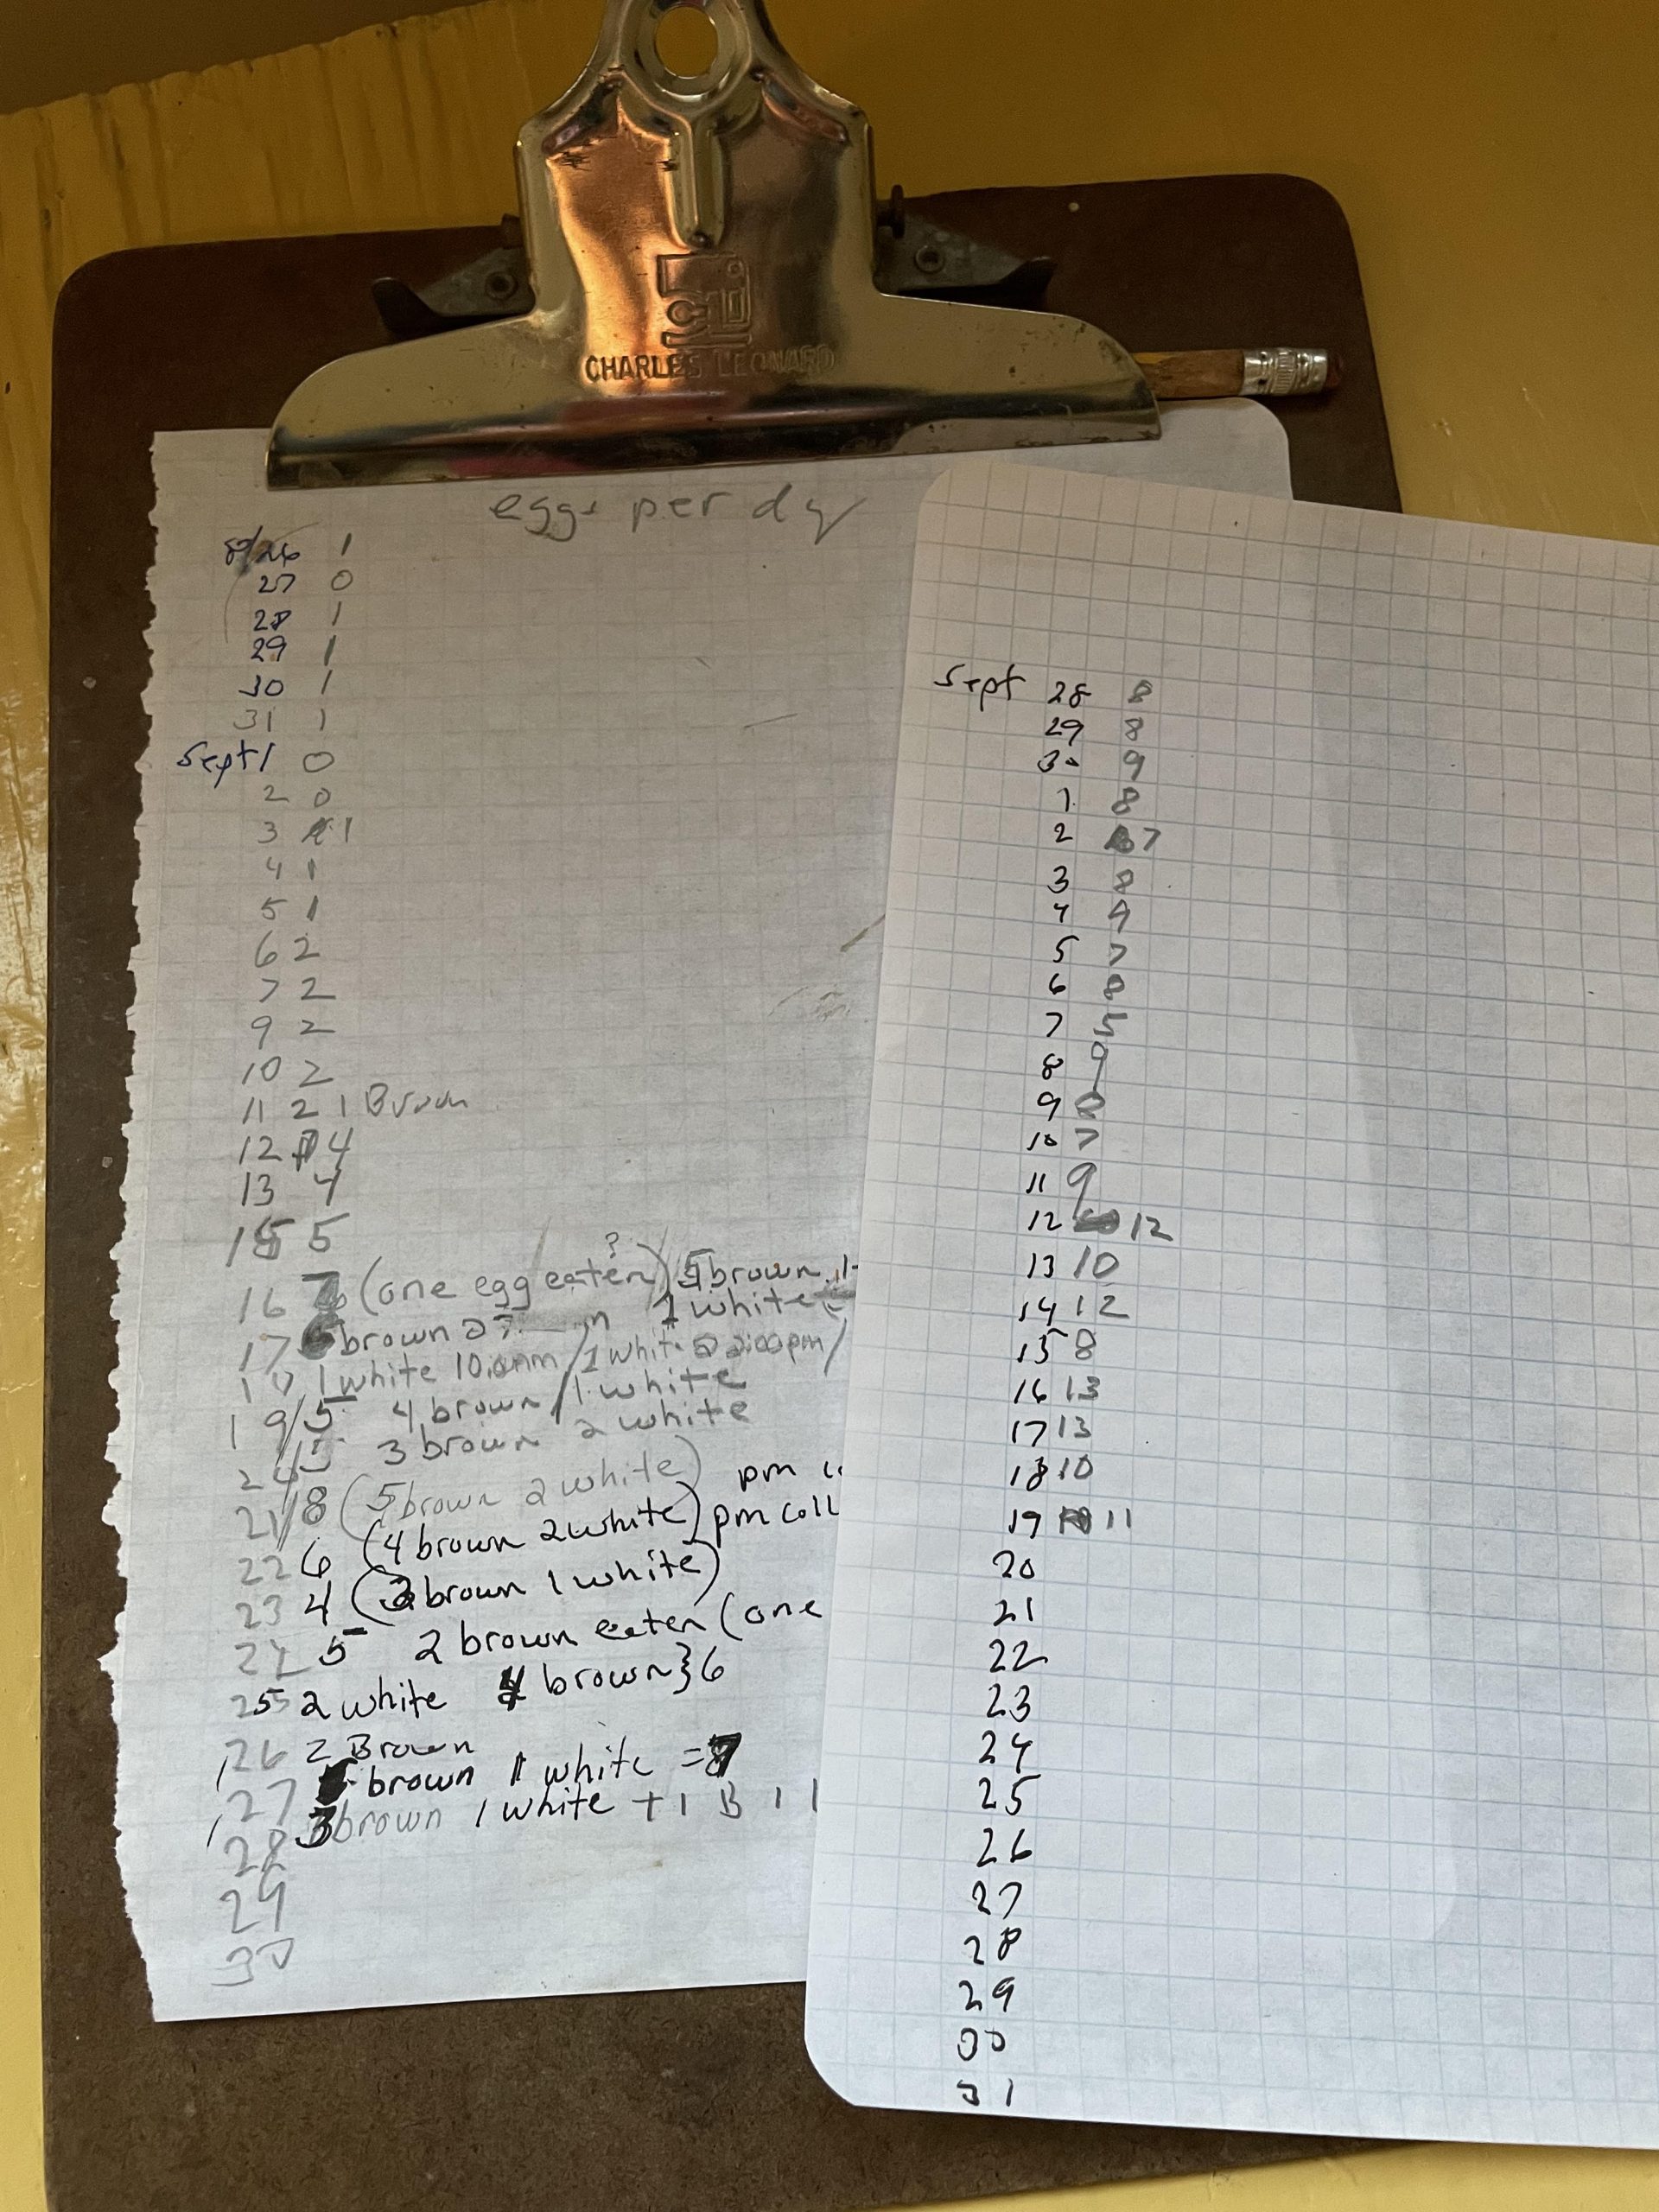 CHARLES LEONARD
eggs per dy
8/26 1
27 0
28 1
29 1
30 1
31 1
Sept 1 0
2 0
3 1
4 1
5 1
6 2
7 2
9 2
10 2
11 2 1 Brown
12 4
13 4
15 5
16 7 (one egg eaten?) 5 brown
1 white
17 brown
1 white 10:00am / 1 white 2:00pm /
19/5 4 brown / 1 white
3 brown 2 white
21/8 (5 brown 2 white) pm
22 6 (4 brown 2 white) pm coll
23 4 (3 brown 1 white)
24 5 2 brown eaten (one
25 2 white 4 brown } 6
26 2 Brown
27 brown 1 white =
28 3 brown 1 white + 1 B 1 1
29
30
Sept 28 8
29 8
30 9
1 8
2 7
3 8
4 9
5 7
6 8
7 5
8 9
9 8
10 7
11 9
12 12
13 10
14 12
15 8
16 13
17 13
18 10
19 11
20
21
22
23
24
25
26
27
28
29
30
31